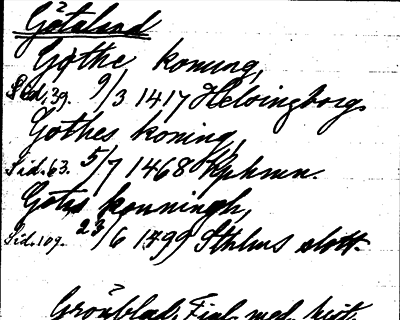 Götaland
Gøthe konung,
Sid. 39. 9/3 1417 Helsingborg.
Gothes koning,
Sid. 63. 5/7 1468 Kphmn.
Gotis konningh,
Sid. 109. 23/6 1499 Sthlms slott.
Grönblad,